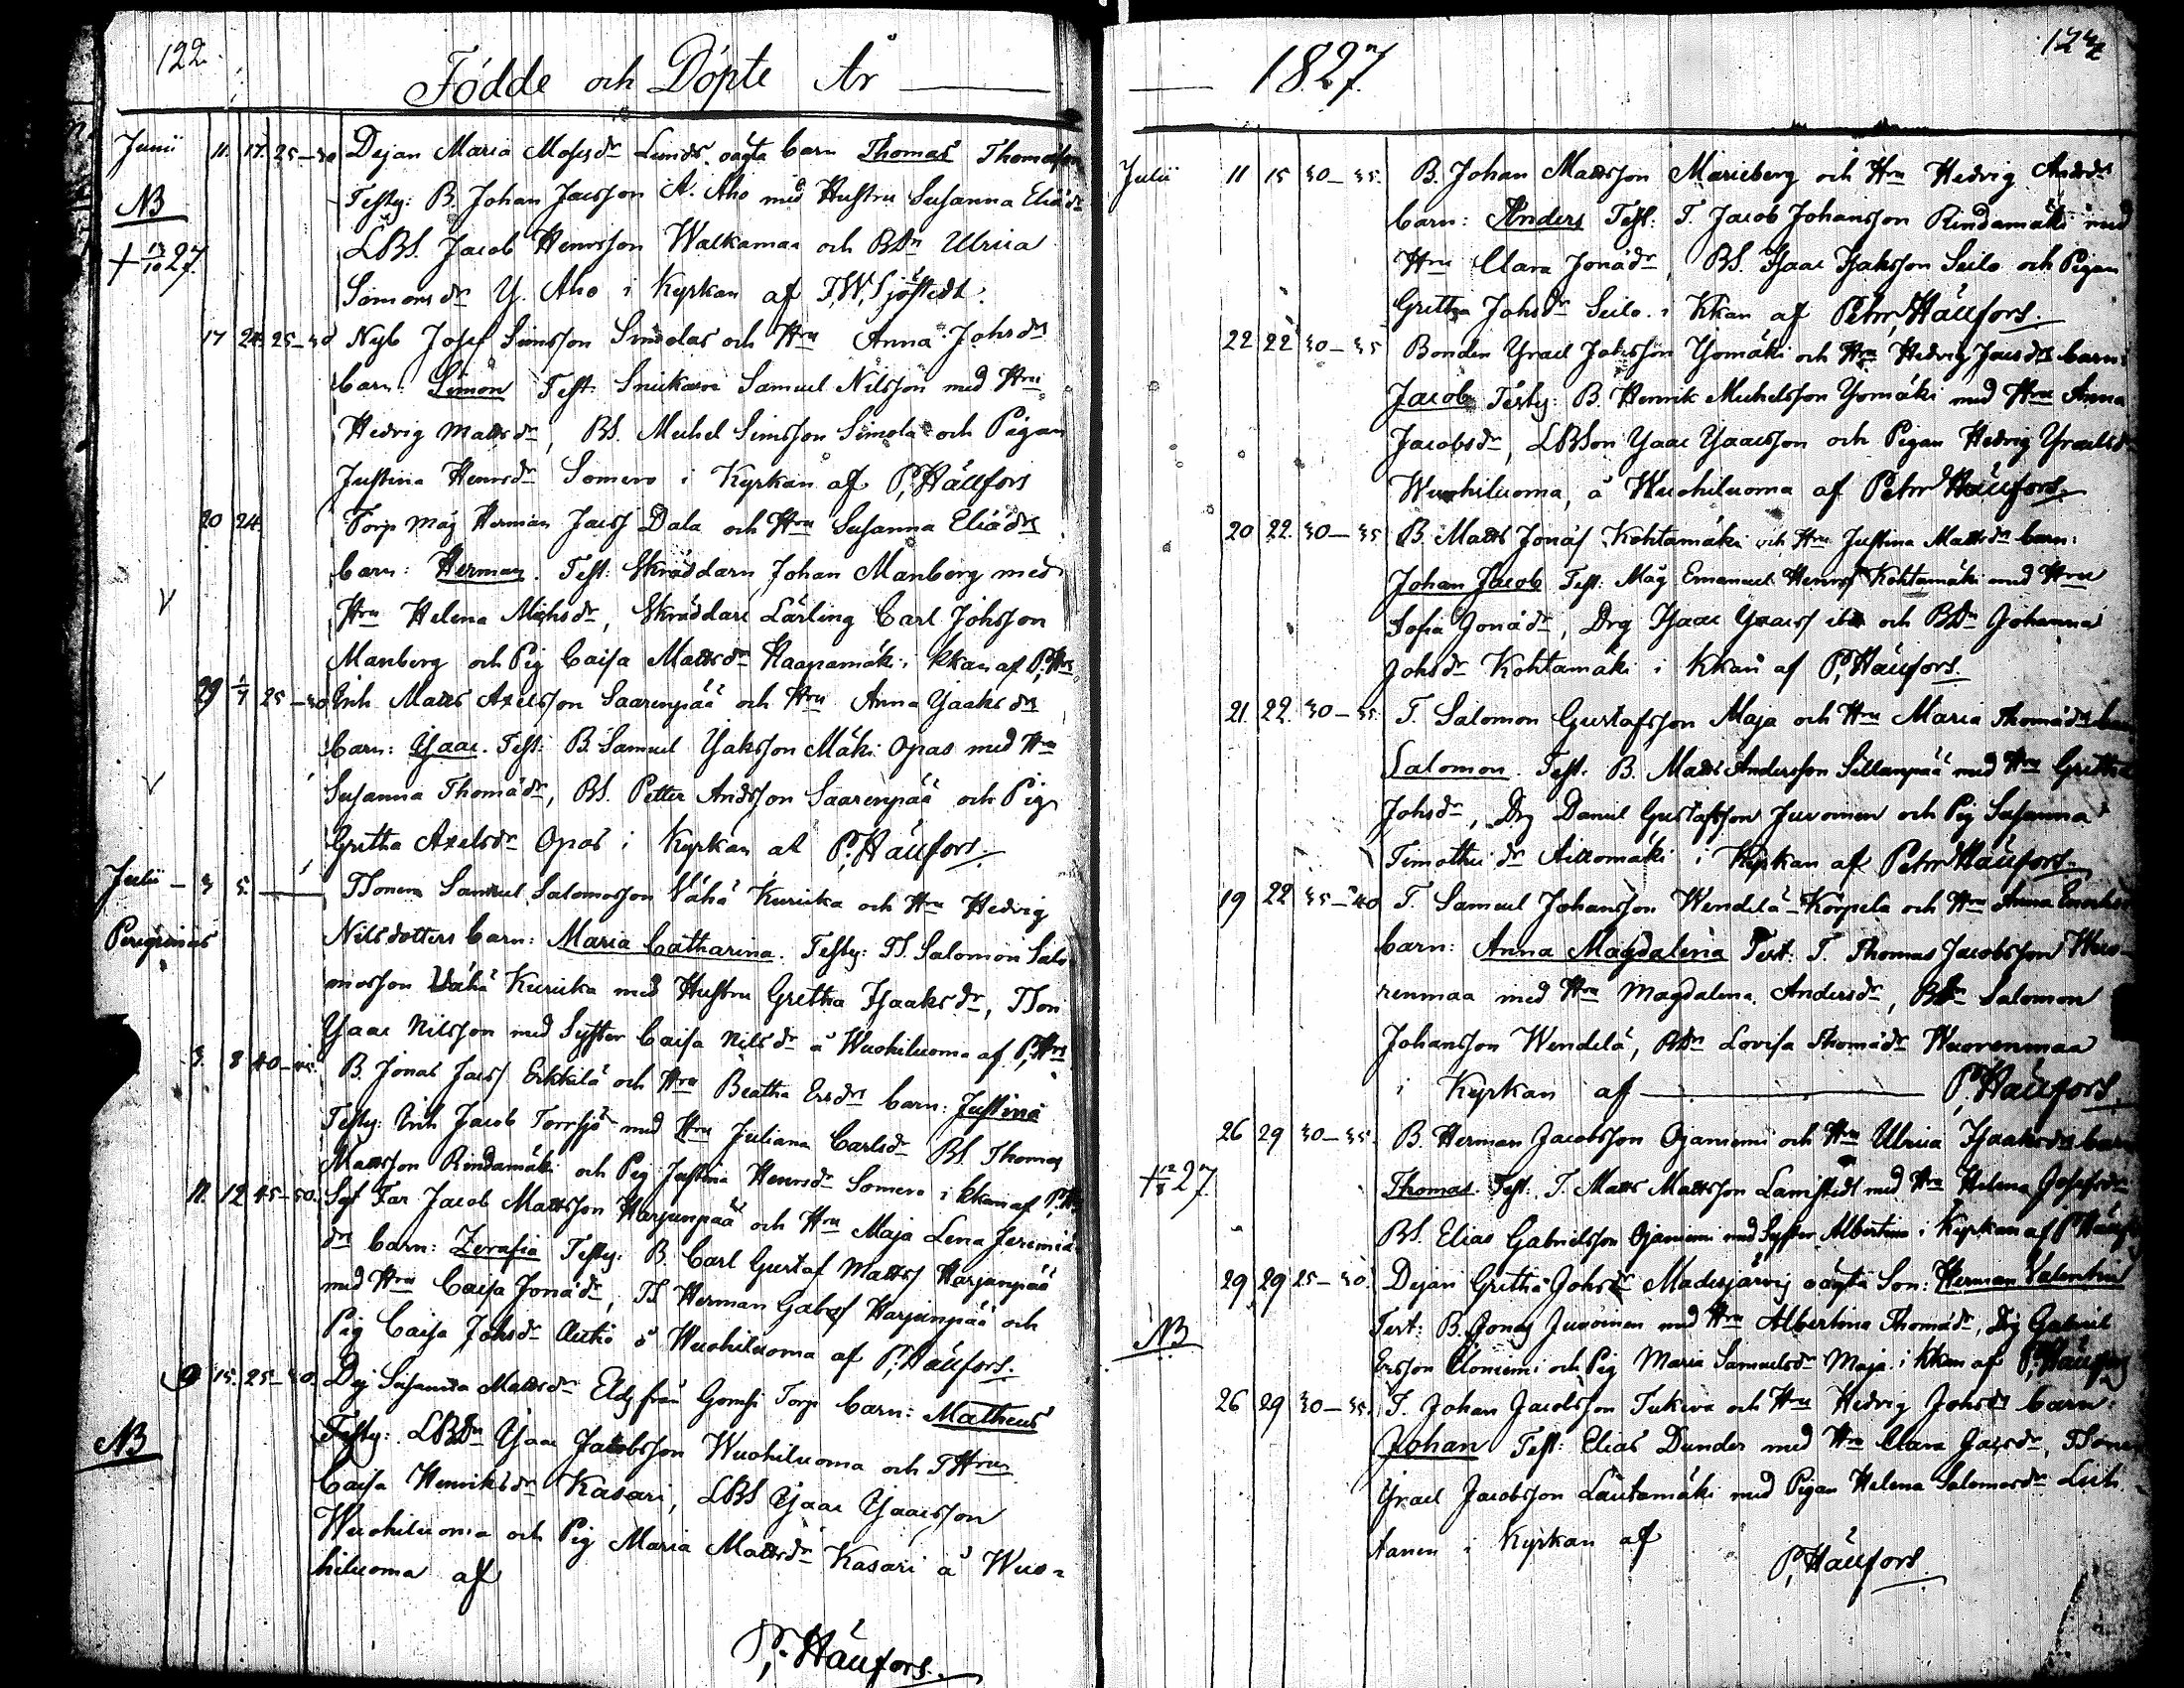 122.
Födde och Döpte År
Junii 11. 17. 25-30 Dejan Maria Mosesdr Lunds oägta barn Thomas Thomasson
NB Testes: B. Johan Jacsson A. Aho med Hustru Susanna Eliædr
+ 13/10 27. LBS. Jacob Henrsson Walkamaa och BDn Ulrica
Simonsdr Y. Aho i Kyrkan af F.W. Sjöstedt.
17 24. 25-30 Nyb Josef Simsson Simolas och Hru Anna Johsdrs
barn: Simon Test. Snickaren Samuel Nilsson med Hru
Hedvig Mattsdr, BS. Michel Simsson Simola och Pigan
Justina Henrsdr Somero i Kyrkan af P. Hällfors
20 24. Torp Måg Herman Jacss Dala och Hru Susanna Eliædrs
barn: Herman. Test: Skräddarn Johan Manberg med
Hru Helena Michsdr, Skräddare Lärling Carl Johsson
Manberg och Pig Caisa Mattsdr Haapamäki i Kkan af P. Hrs
29 1/7 25-30 Inh. Matts Axelsson Saarenpää och Hru Anna Ysaksdrs
barn: Ysaac. Test: B. Samuel Ysaksson Mäki Opas med Hru
Susanna Thomædr, BS. Petter Andsson Saarenpää och Pig
Gretha Axelsdr Opas i Kyrkan af P. Hällfors.
Julii - 3 5. TSonen Samuel Salomosson Vähä Kurikka och Hru Hedvig
Peregrinas Nilsdotters barn: Maria Catharina. Testes: TS. Salomon Salo-
mosson Vähä Kurikka med Hustru Gretha Isaaksdr, TSon
Ysaac Nilsson med Syster Caisa Nilsdr å Wuohiluoma af P. Hrs
3. 8 40-45. B. Jonas Jacss Erkkilä och Hru Beatha Ersdrs barn: Justina
Testes: Inh Jacob Torrsjö med Hru Juliana Carlsdr BS. Thomas
Mattsson Rindamäki och Pig Justina Henrsdr Somero i Kkan af P. Hrs
11. 12 45-50. Sqf Far Jacob Mattsson Harjunpää och Hru Maja Lena Jeremiæ
dr barn: Zerafia Testes: B. Carl Gustaf Mattss Harjunpää
med Hru Caisa Jonædr, TS Herman Gabrss Harjunpää och
Pig Caisa Johsdr Autio å Wuohiluoma af P. Hällfors.
9 15. 25-30. Dej Susanna Mattsdr Eld från Torp barn: Matheus
NB Testes: LBDn Ysaac Jacobsson Wuohiluoma och THrun
Caisa Henriksdr Kasari, LBS Ysaac Ysaacsson
Wuohiluoma och Pig Maria Mattsdr Kasari å Wuo=
hiluoma af
P. Hällfors.
1827.
Julii 11 15 30-35. B. Johan Mattsson Marieberg och Hru Hedvig Andsdrs
barn: Anders Test: T. Jacob Johansson Rindamäki med
Hru Clara Jonædr, BS. Isaac Isaksson Seilo och Pigan
Gretha Johsdr Seilo i Kkan af Petter Hällfors.
22 22 30-35 Bonden Ysrael Johsson Yomäki och Hru Hedvig Jacsdrs barn:
Jacob Testes: B. Henrik Michelsson Yomäki med Hru Anna
Jacobsdr, LBSon Ysaac Ysaacsson och Pigan Hedvig Ysraelsdr
Wuohiluoma, å Wuohiluoma af Petter Hällfors.
20 22. 30-35 B. Matts Jonæs Kohtamäki och Hru Justina Mattsdrs barn:
Johan Jacob Test: Måg Emanuel Henrss Kohtamäki med Hru
Sofia Jonædr, Drg Isaac Ysaacss och BDn Johanna
Johsdr Kohtamäki i Kkan af P. Hällfors.
21. 22. 30-35. T. Salomon Gustafsson Maja och Hru Maria Thomædrs barn
Salomon. Test: B. Matts Andersson Sillanpää med Hru Gretha
Johsdr, Drg Daniel Gustafsson Juvoinen och Pig Susanna
Timothei dr Aittomäki i Kyrkan af Petter Hällfors.
19 22 35-40 T. Samuel Johansson Wendelä-Korpela och Hru Anna
barn: Anna Magdalena Test: T. Thomas Jacobsson Wuo-
renmaa med Hru Magdalena Andersdr, Salomon
Johansson Wendelä, BDn Lovisa Thomædr Wuorenmaa
i Kyrkan af P. Hällfors.
26 29 30-35. B. Herman Jacobsson Ojaniemi och Hru Ulrica Isaaksdrs barn
+ 12/8 27. Thomas. Test: T. Matts Mattsson Lamstedt med Hru Helena Josefsdr
BS. Elias Gabrielsson Ojaniemi med Syster Albertina i Kyrkan af P. Hällfors
29 29 25-30 Dejan Gretha Johsdr Madesjärvis oägta Son: Herman Valentin
NB Test: B. Jonas Juvoinen med Hru Albertina Thomædr, Drg Gabriel
Ersson Iloniemi och Pig Maria Samuelsdr Maja i Kkan af P. Hällfors
26 29 30-35. T. Johan Jacobsson Tukeva och Hru Hedvig Johsdrs barn:
Johan Test: Elias Dunder med Hru Clara Jacsdr, TSonen
Ysrael Jacobsson Lautamäki med Pigan Helena Salomosdr Luh-
tanen i Kyrkan af
P. Hällfors.